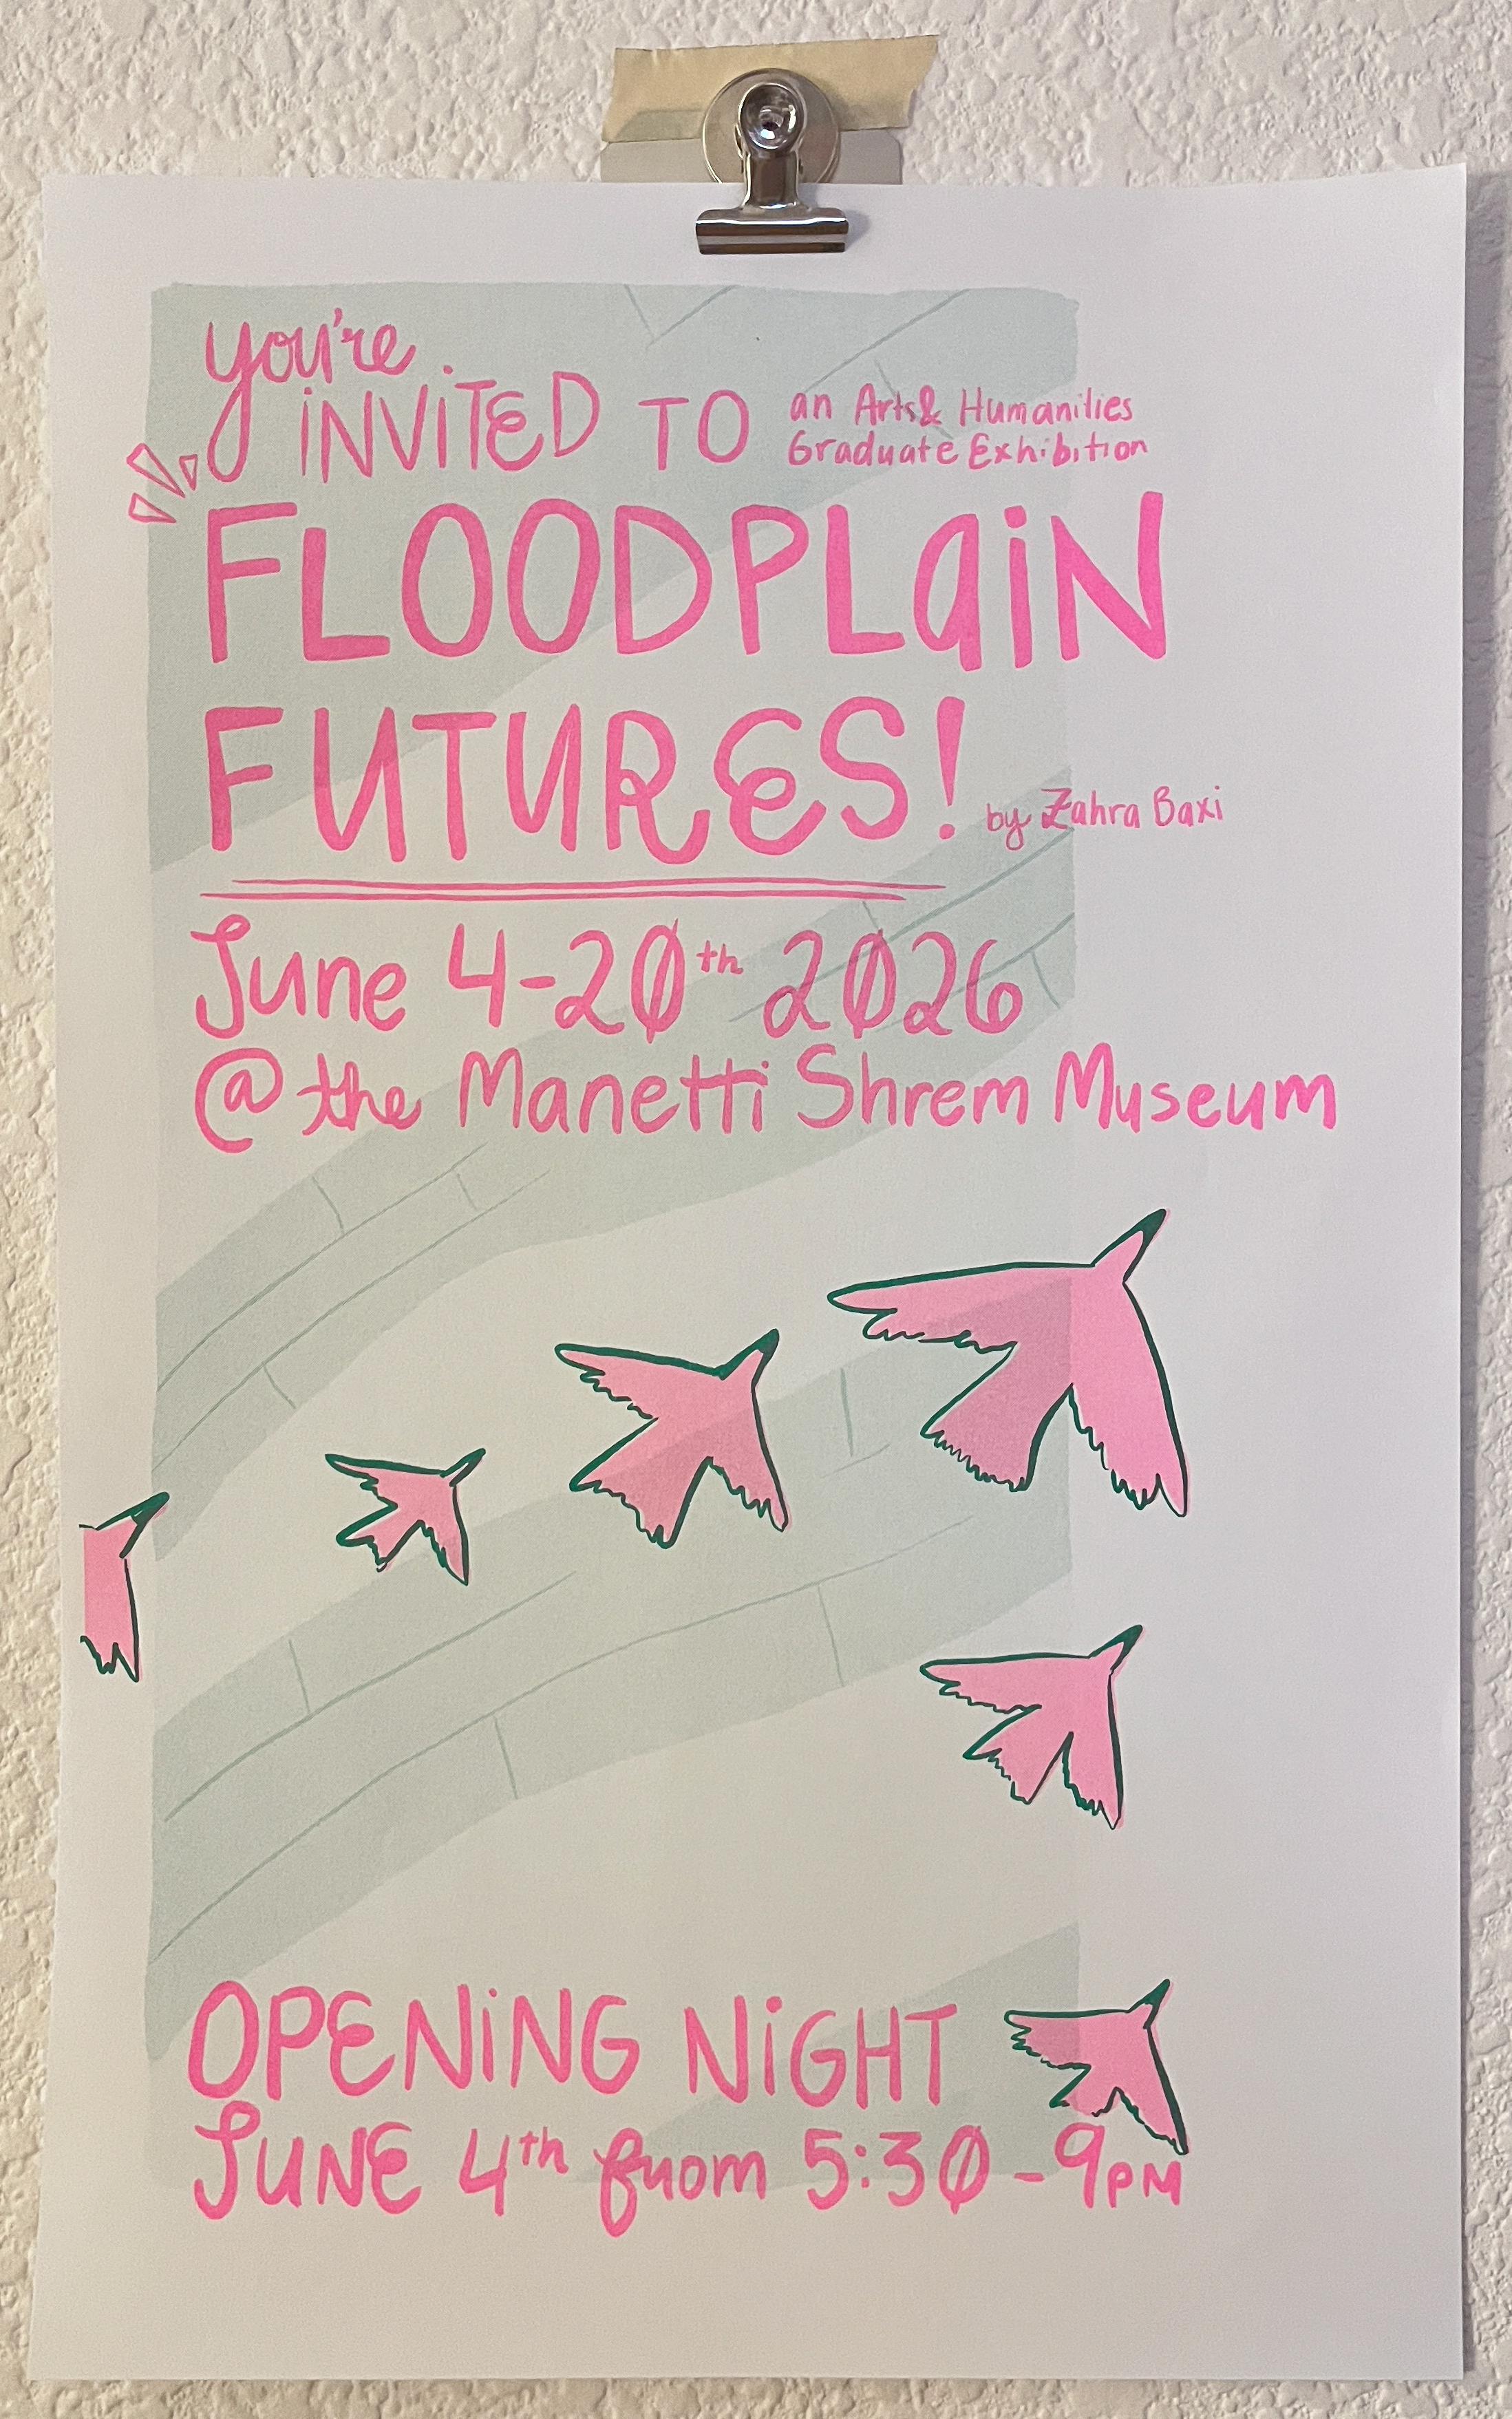 you're
iNViTED TO
an Arts& Humanities
Graduate Exhibition
FLOODPLaiN
FUTURES!
by Zahra Baxi
June 4-20th 2026
@ the Manetti Shrem Museum
OPENiNG NiGHT
JUNE 4th from 5:30-9PM